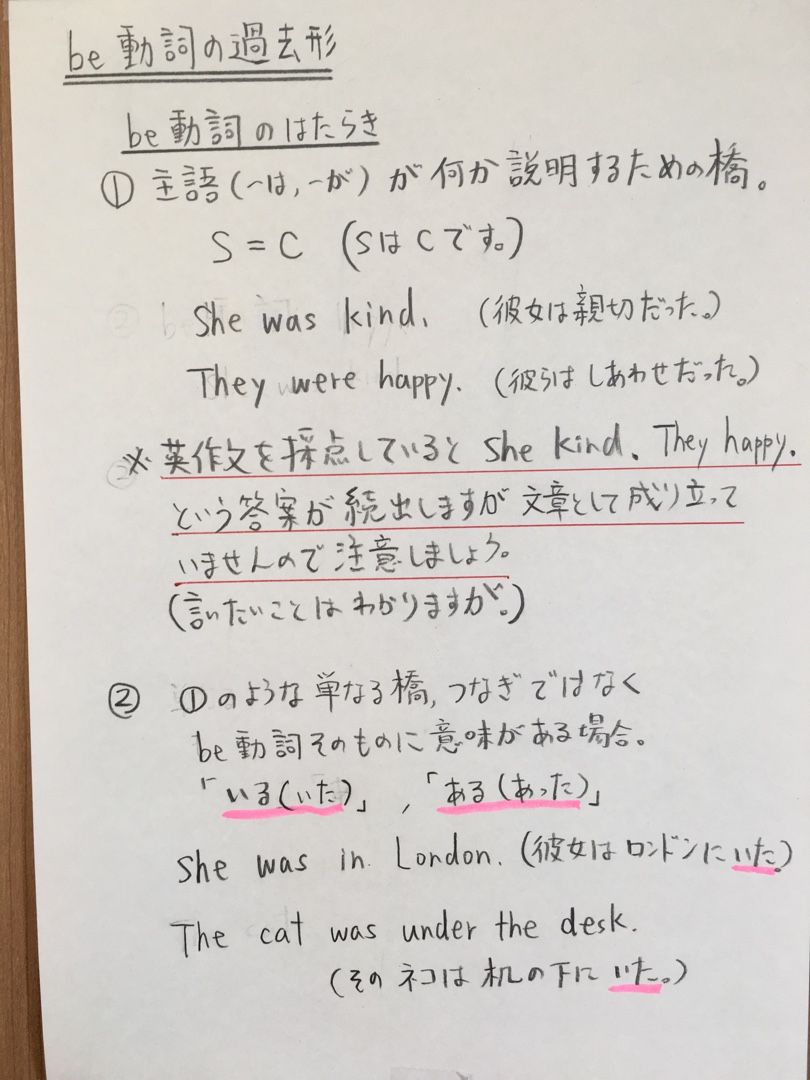 be動詞の過去形
be動詞のはたらき
① 主語(〜は,〜が)が何か説明するための橋。
S = C (SはCです。)
She was kind. (彼女は親切だった。)
They were happy. (彼らはしあわせだった。)
※ 英作文を採点していると She kind. They happy.
という答案が続出しますが文章として成り立って
いませんので注意しましょう。
(言いたいことはわかりますが。)
② ①のような単なる橋,つなぎではなく
be動詞そのものに意味がある場合。
「いる(いた)」,「ある(あった)」
She was in London. (彼女はロンドンにいた。)
The cat was under the desk.
(そのネコは机の下にいた。)